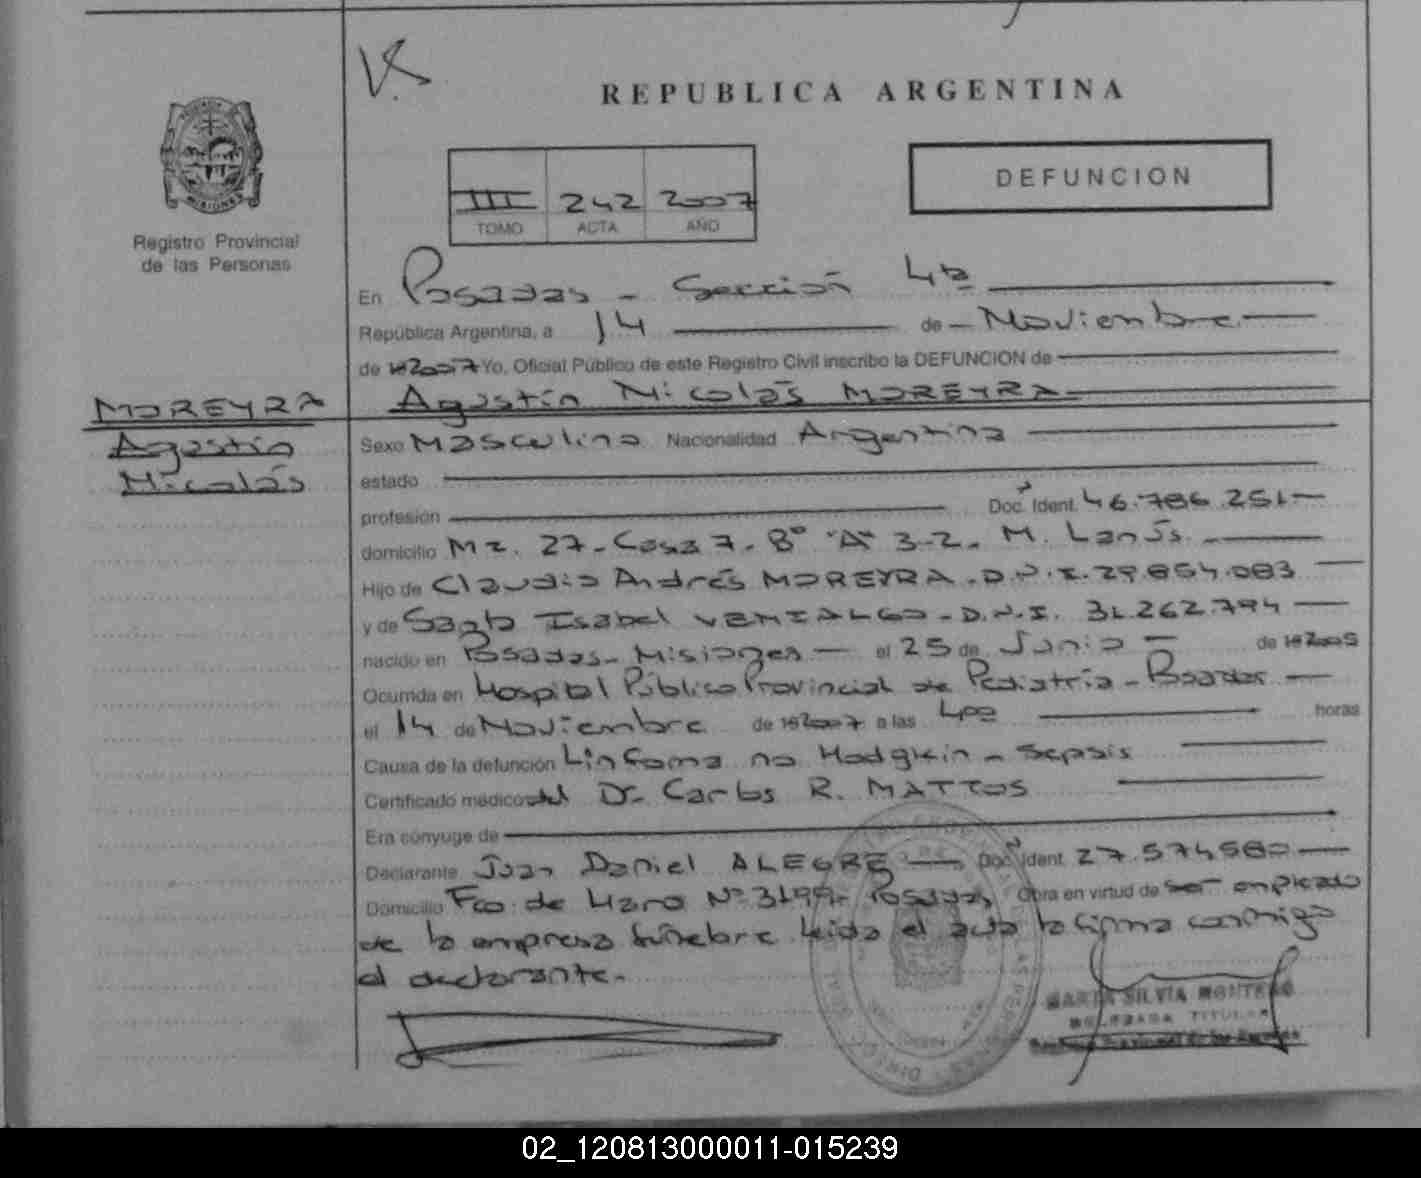 REPUBLICA ARGENTINA
DEFUNCION
MISIONES
Registro Provincial
de las Personas
III 242 2007
TOMO ACTA AÑO
En Posadas - Sección 4ta
República Argentina, a 14 de Noviembre
de 2007 Yo, Oficial Público de este Registro Civil inscribo la DEFUNCION de
Agustín Nicolás MOREYRA
MOREYRA
Agustín
Nicolás
Sexo Masculino Nacionalidad Argentina
estado
profesión Doc. Ident. 46.786.251
domicilio Mz. 27 - Casa 7 - B° "A" 3-2 - M. Lanús
Hijo de Claudio Andrés MOREYRA - D.N.I. 29.854.083
y de Isabel VENIALGO - D.N.I. 31.262.794
nacido en Posadas - Misiones el 25 de Junio de 2005
Ocurrida en Hospital Público Provincial de Pediatría - Posadas
el 14 de Noviembre de 2007 a las 400 horas
Causa de la defunción Linfoma no Hodgkin - Sepsis
Certificado médico del Dr. Carlos R. MATTOS
Era cónyuge de
Declarante Juan Daniel ALEGRE Doc. Ident. 27.574.580
Domicilio Fco. de Haro N° 3199 - Posadas Obra en virtud de ser empleado
de la empresa fúnebre leída el acta la firma conmigo
el declarante.
MARTA SILVIA MONTERO
DELEGADA TITULAR
Registro Provincial de las Personas
02_120813000011-015239